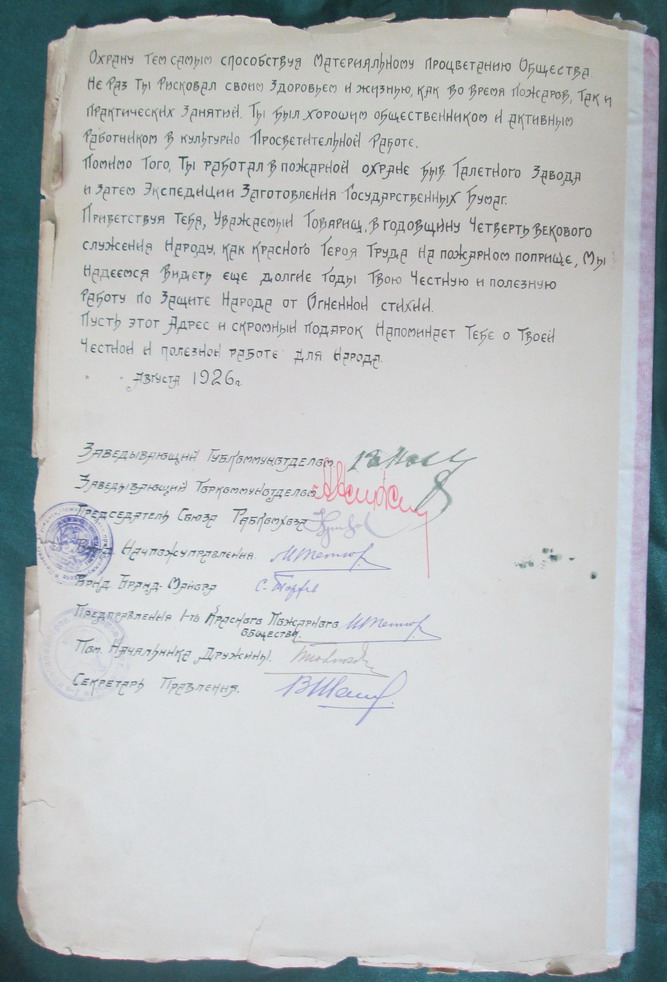 Охрану тем самым способствуя материальному процветанию Общества.
Не раз ты рисковал своим здоровьем и жизнью, как во время пожаров, так и
практических занятий. Ты был хорошим общественником и активным
работником в культурно Просветительной работе.
Помимо того, ты работал в пожарной охране быв Галетного Завода
и затем Экспедиции Заготовления Государственных Бумаг.
Приветствуя Тебя, Уважаемый Товарищ, в годовщину Четверть векового
служения Народу, как Красного Героя Труда на пожарном поприще, Мы
надеемся видеть еще долгие годы Твою Честную и полезную
работу по Защите Народа от Огненной стихии.
Пусть этот Адрес и скромный подарок Напоминает Тебе о Твоей
Честной и полезной работе для Народа.
" " Августа 1926 г.
Заведывающий Губкоммунотделом
Заведывающий Горкоммунотделом
Председатель Союза Рабкомхоза
Врид. Начпожуправления.
Врид. Бранд-Майора
Предправления 1-го Красного Пожарного
Обществ.
Пом. Начальника Дружины.
Секретарь Правления.